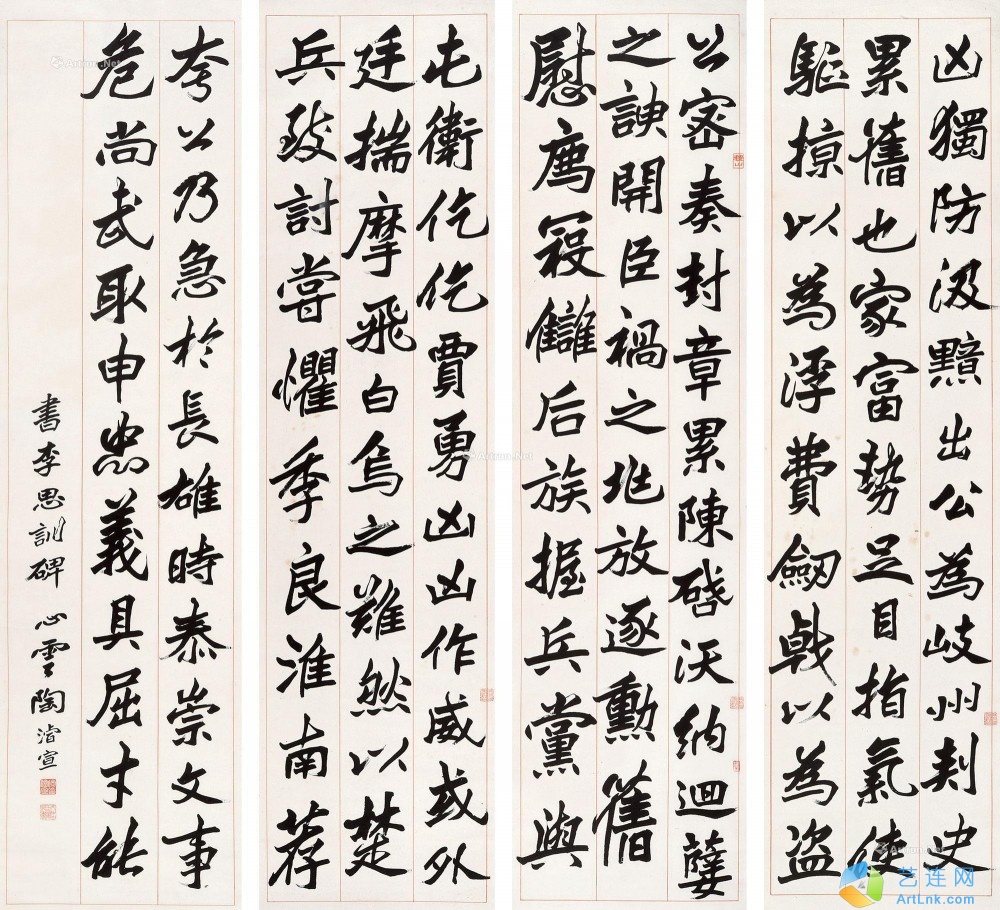 凶獨防汲黯出公為岐州刾史
累舊也家富勢足目指氣使
駈掠以為浮費劒戟以為盜
公密奏封章累陳啓沃納迴孽
之諛開臣禍之兆放逐勳舊
慰廌寇讎后族握兵黨與
屯衛仡仡賈勇凶凶作威或外
廷揣摩飛白烏之難然以楚
兵致討嘗懼季良淮南荐
夸公乃急於長雄時泰崇文事
危尚武耴申忠義具屈才能
書李思訓碑 心雲陶濬宣
艺连网
ArtLnk.com